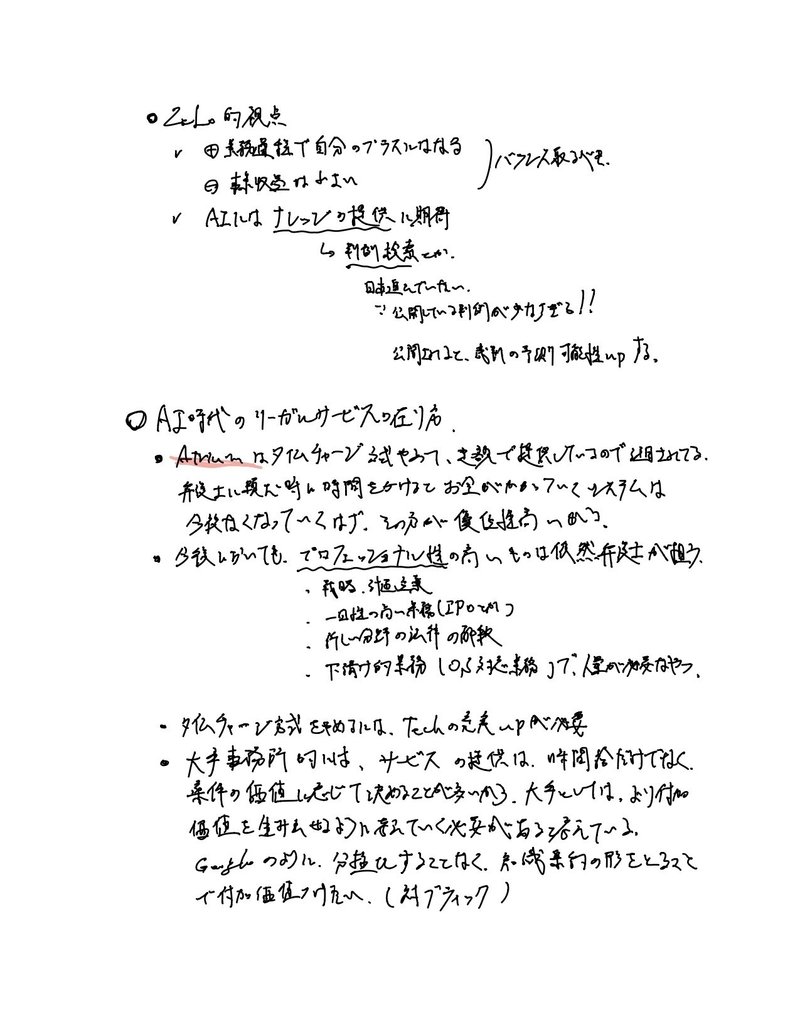 的視点
⊕ 業務過程で自分のプラスになる
バランス取るべき.
⊖ 短い
✓ AIには ナレッジの提供に期待
↳ 判例検索とか.
日本進んでいない.
∵ 公開している判例が少なすぎる!!
公開されると、裁判の予測可能性upする。
○ AI時代のリーガルサービスの在り方.
・Atrium はタイムチャージ方式やめて、定額で提供しているので注目されてる.
弁護士に頼む時に時間をかけると お金がかかっていくシステムは
今後なくなっていくはず. その方が優位性高いから.
・今後においても、プロフェッショナル性の高いものは依然弁護士が担う.
・戦略、立案
・一回性の高い業務(IPOとか)
・新しい分野の法律の解釈
・下請け的業務 ( 対応業務)で、人量が必要なやつ.
・タイムチャージ方式をやめるには、Techの充実upが必要
・大手事務所的には、サービスの提供は、時間給だけでなく、
案件の価値に応じて決めることが多いから、大手としては、より付加
価値を生み出せるように考えていく必要があると考えている。
Googleのように、分社化することなく、知識集約の形をとること
で付加価値つけたい. (対ブティック)